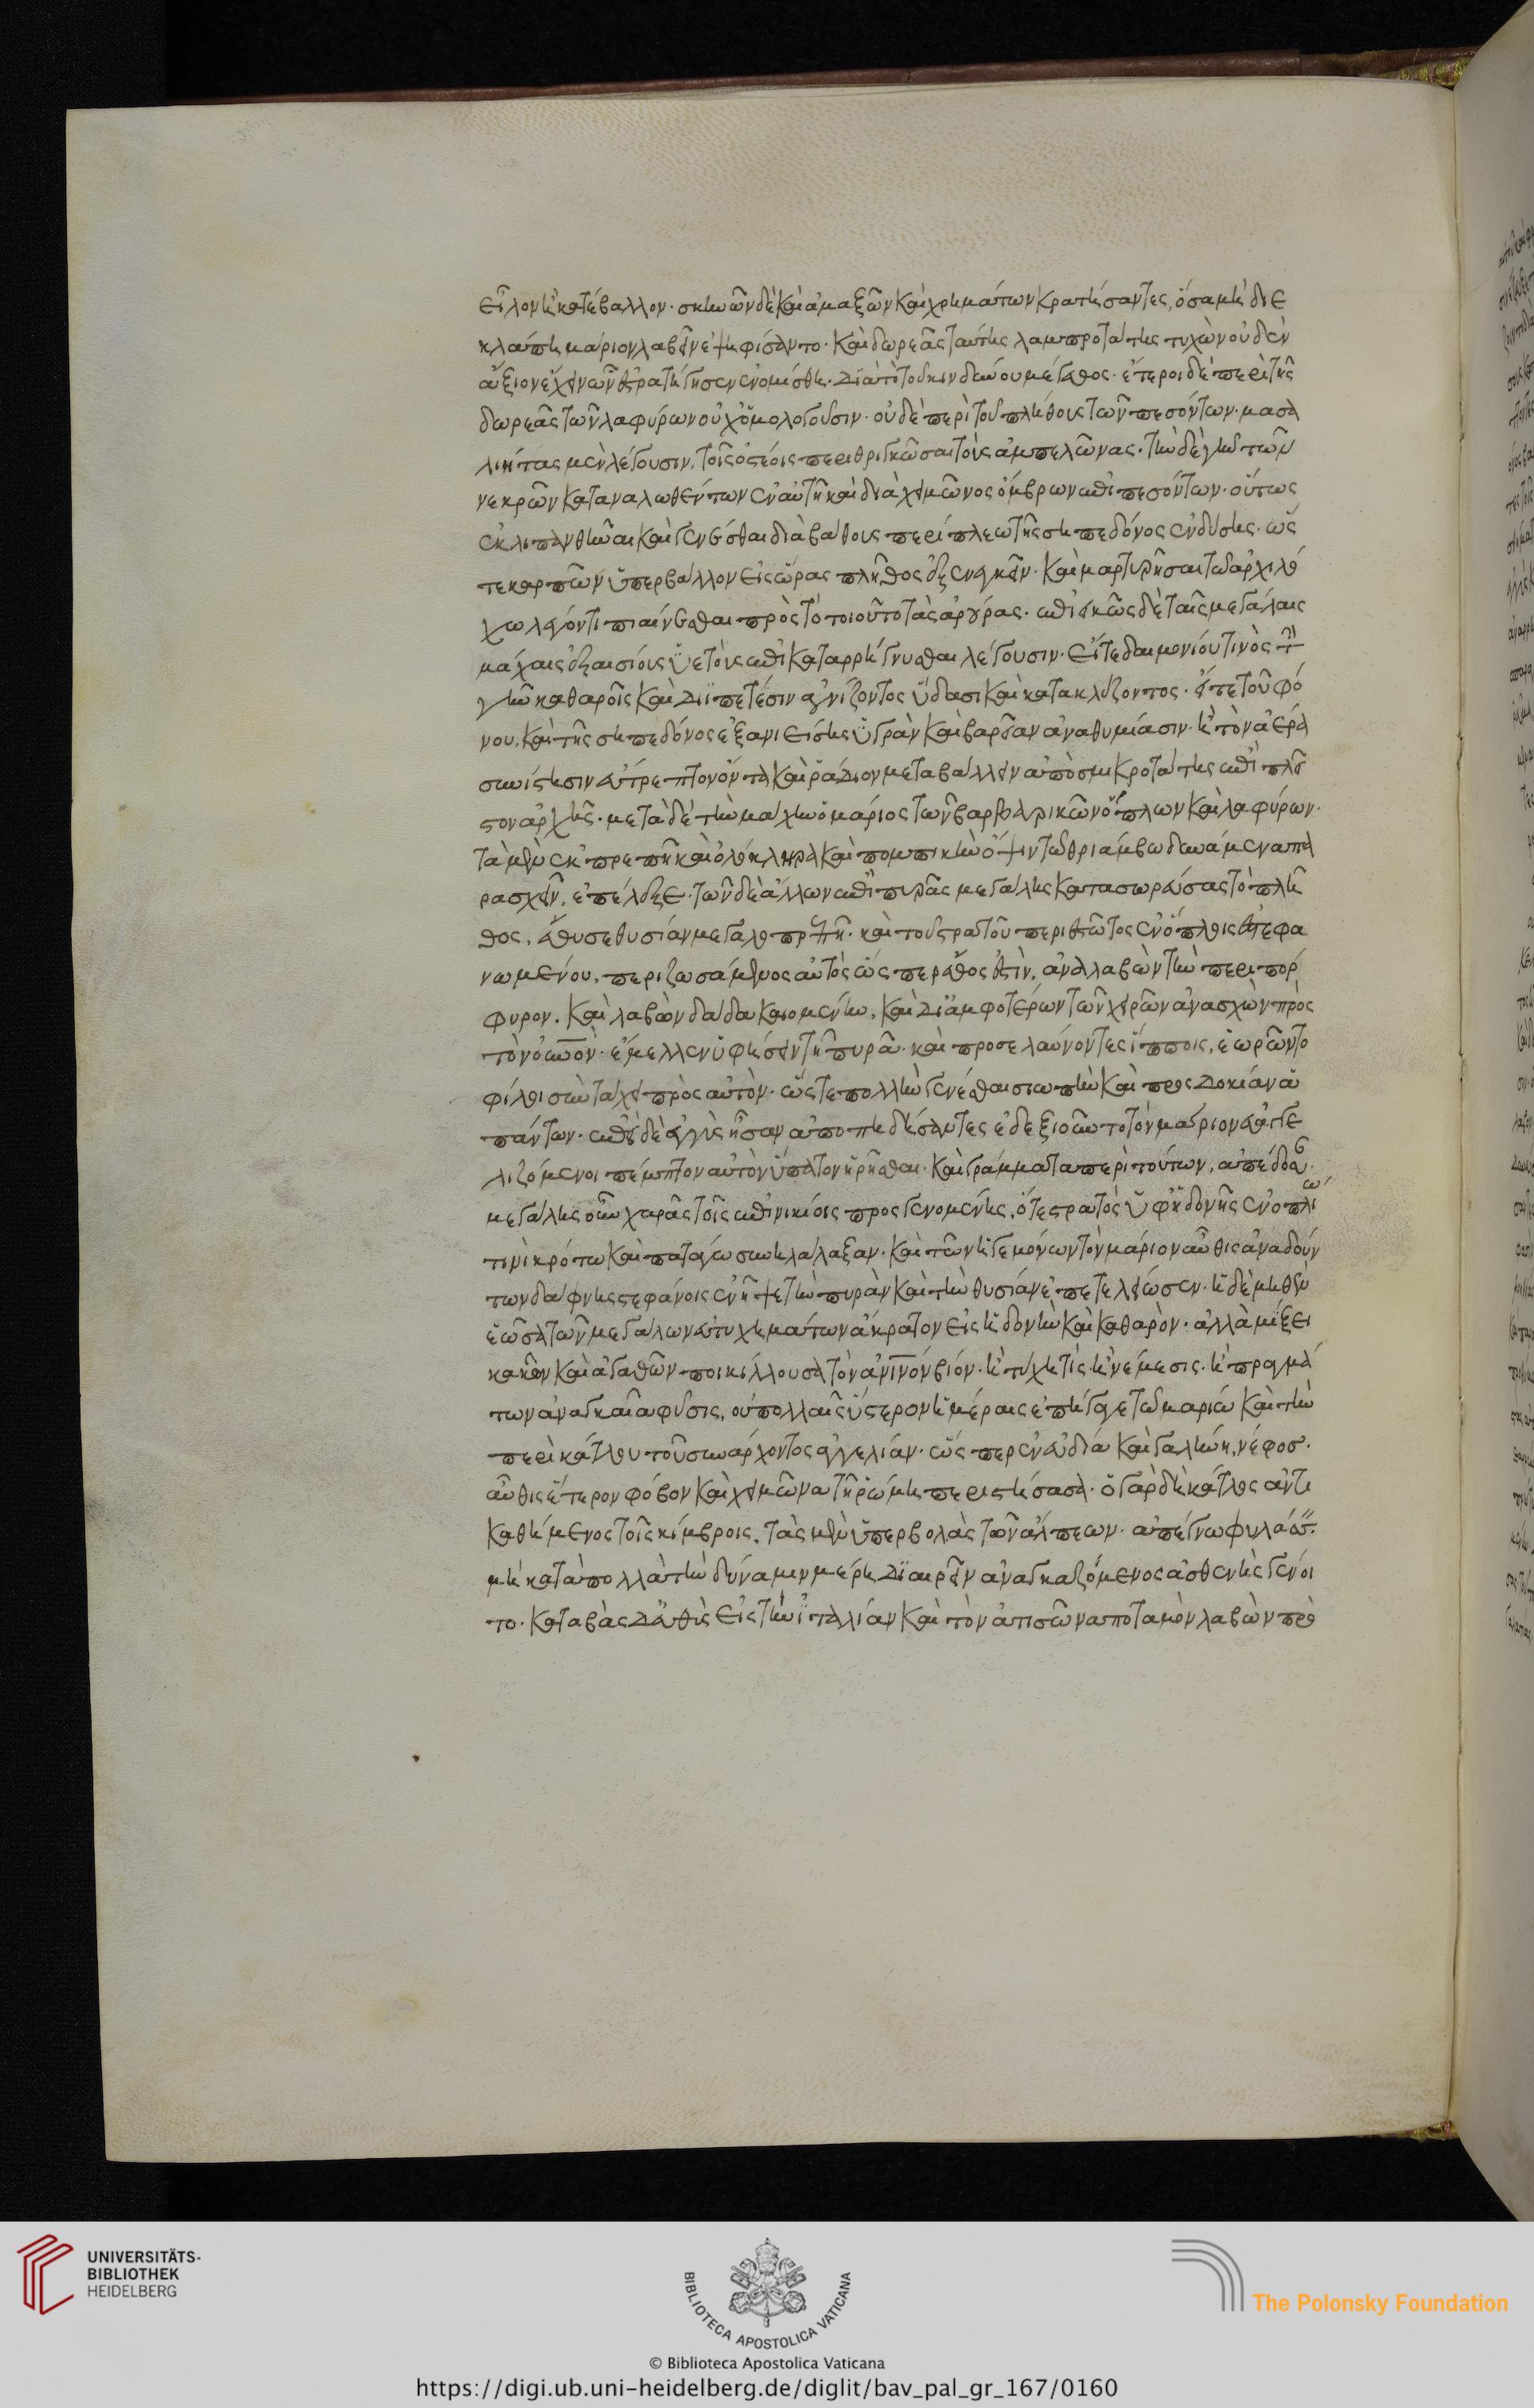 εἷλον ἢ κατέβαλλον· σκηνῶν δὲ καὶ ἁμαξῶν καὶ χρημάτων κρατήσαντες, ὅσα μὴ διε
κλάπη μάριον λαβεῖν ἐψηφίσαντο· καὶ δωρεᾶς ταύτης λαμπροτάτης τυχὼν οὐδὲν
ἄξιον ἔχειν ὧν ἐστρατήγησεν ἐνομίσθη· διὰ τὸ τοῦ κινδύνου μέγεθος· ἕτεροι δὲ περὶ τῆς
δωρεᾶς τῶν λαφύρων οὐχ ὁμολογοῦσιν· οὐδὲ περὶ τοῦ πλήθους τῶν πεσόντων· μασα
λιήτας μὲν λέγουσιν, τοῖς ὀστέοις περιθριγκῶσαι τοὺς ἀμπελῶνας· τὴν δὲ γῆν τῶν
νεκρῶν καταναλωθέντων ἐν αὐτῇ καὶ διὰ χειμῶνος ὄμβρων ἐπιπεσόντων· οὕτως
ἐκλιπανθῆναι καὶ γενέσθαι διὰ βάθους περίπλεω τῆς σηπεδόνος ἐνδύσης· ὥς
τε καρπῶν ὑπερβάλλον εἰς ὥρας πλῆθος ἐξενεγκεῖν· καὶ μαρτυρῆσαι τῷ ἀρχιλό
χῳ λέγοντι πιαίνεσθαι πρὸς τὸ τοιοῦτο τὰς ἀργύρας· ἐπιεικῶς δὲ ταῖς μεγάλαις
μάχαις ἐξαισίους ὑετοὺς ἐπικαταρρήγνυσθαι λέγουσιν· εἴτε δαιμονίου τινὸς τὴν
γῆν καθαροῖς καὶ διϊπετέσιν ἁγνίζοντος ὕδασι καὶ κατακλύζοντος· εἴτε τοῦ φό
νου, καὶ τῆς σηπεδόνος ἐξανιείσης ὑγρὰν καὶ βαρεῖαν ἀναθυμίασιν· ἣ τὸν ἀέρα
συνίστησιν εὔτρεπτον ὄντα καὶ ῥάδιον μεταβάλλειν ἀπὸ σμικροτάτης ἐπὶ πλεῖ
στον ἀρχῆς· μετὰ δὲ τὴν μάχην ὁ μάριος τῶν βαρβαρικῶν ὅπλων καὶ λαφύρων·
τὰ μὲν ἐκπρεπῆ καὶ ὁλόκληρα καὶ πομπικὴν ὄψιν τῷ θριάμβῳ δυνάμενα πα
ρασχεῖν, ἐπέλεξε· τῶν δὲ ἄλλων ἐπὶ πυρᾶς μεγάλης κατασωρεύσας τὸ πλῆ
θος, ἔθυσε θυσίαν μεγαλοπρεπῆ· καὶ τοῦ στρατοῦ περιεστῶτος ἐν ὅπλοις ἐστεφα
νωμένου, περιζωσάμενος αὐτὸς ὥς περ ἔθος ἐστὶν, ἀναλαβὼν τὴν περιπόρ
φυρον, καὶ λαβὼν δᾶδα καιομένην, καὶ δι' ἀμφοτέρων τῶν χειρῶν ἀνασχὼν πρὸς
τὸν οὐνον· ἔμελλεν ὑφήσειν τῇ πυρᾷ· καὶ προσελαύνοντες ἵπποις, ἑωρῶντο
φίλοι σὺν τάχει πρὸς αὐτὸν· ὥς τε πολλὴν γενέσθαι σιωπὴν καὶ προσδοκίαν ἁ
πάντων· ἐπεὶ δὲ ἐγγὺς ἦσαν ἀποπηδήσαντες ἐδεξιοῦντο τὸν μάριον εὐαγγε
λιζόμενοι πέμπτον αὐτὸν ὕπατον ᾑρῆσθαι· καὶ γράμματα περὶ τούτων, ἀπέδοσαν·
μεγάλης οὖν χαρᾶς τοῖς ἐπινικίοις προσγενομένης, ὅ τε στρατὸς ὑφ' ἡδονῆς ἐνοπλίῳ
τινὶ κρότῳ καὶ πατάγῳ συνηλάλαξαν· καὶ τῶν ἡγεμόνων τὸν μάριον αὖθις ἀναδούν
των δάφνης στεφάνοις ἐνῆψε τὴν πυρὰν καὶ τὴν θυσίαν ἐπετελείωσεν· ἡ δὲ μηθὲν
ἐῶσα τῶν μεγάλων εὐτυχημάτων ἄκρατον εἰς ἡδονὴν καὶ καθαρὸν· ἀλλὰ μίξει
κακῶν καὶ ἀγαθῶν ποικίλλουσα τὸν ἀνινον βίον· ἢ τύχη τὶς· ἢ νέμεσις· ἢ πραγμά
των ἀναγκαία φύσις, οὐ πολλαῖς ὕστερον ἡμέραις ἐπήγαγε τῷ μαρίῳ καὶ τὴν
περὶ κάτλου τοῦ συνάρχοντος ἀγγελίαν· ὥς περ ἐν εὐδίᾳ καὶ γαλήνῃ, νέφος·
αὖθις ἕτερον φόβον καὶ χειμῶνα τῇ ῥώμῃ περιστήσασα· ὁ γὰρ δὴ κάτλος ἀντι
καθήμενος τοῖς κίμβροις, τὰς μὲν ὑπερβολὰς τῶν ἄλπεων· ἀπέγνω φυλάσσειν·
μὴ κατὰ πολλὰ τὴν δύναμιν μέρη διαιρεῖν ἀναγκαζόμενος ἀσθενὴς γένοι
το· καταβὰς δ' εὐθὺς εἰς τὴν ἰταλίαν καὶ τὸν ἀτισῶνα ποταμὸν λαβὼν πρὸ
UNIVERSITÄTS-
BIBLIOTHEK
HEIDELBERG
BIBLIOTECA APOSTOLICA VATICANA
The Polonsky Foundation
© Biblioteca Apostolica Vaticana
https://digi.ub.uni-heidelberg.de/diglit/bav_pal_gr_167/0160